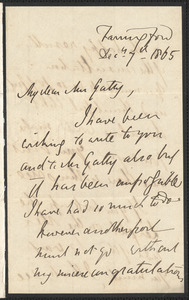 Farringford
Dec. 7th 1865
My dear Mrs Gatty,
I have been
wishing to write to you
and to Mr Gatty also but
it has been impossible
I have had so much to do
However another post
must not go without
my sincere congratulations